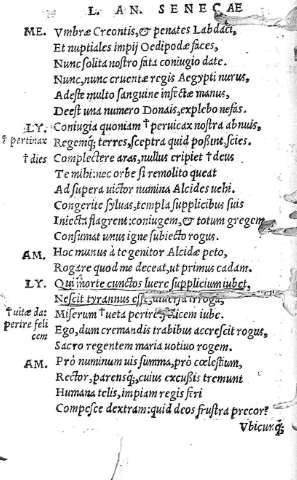 L. AN. SENECAE
ME. Vmbræ Creontis, & penates Labdaci,
Et nuptiales impij Oedipodæ faces,
Nunc solita nostro fata coniugio date.
Nunc, nunc cruentæ regis Aegypti nurus,
Adeste multo sanguine infectæ manus,
Deest una numero Donais, explebo nefas.
LY. Coniugia quoniam † peruicax nostra abnuis,
† pertinax Regemq́; terres, sceptra quid possint, scies.
† dies Complectere aras, nullus eripiet † deus
Te mihi: nec orbe si remolito queat
Ad supera uictor numina Alcides uehi.
Congerite syluas, templa supplicibus suis
Iniecta flagrent: coniugem, & totum gregem
Consumat unus igne subiecto rogus.
AM. Hoc munus à te genitor Alcidæ peto,
Rogare quod me deceat, ut primus cadam.
LY. Qui morte cunctos luere supplicium iubet,
Nescit tyrannus esse, irroga,
† uitæ dat Miserum † ueta perire, felicem iube.
perire feli Ego, dum cremandis trabibus accrescit rogus,
cem Sacro regentem maria uotiuo rogem.
AM. Prô numinum uis summa, prô cœlestium,
Rector, parensq́;, cuius excussis tremunt
Humana telis, impiam regis feri
Compesce dextram: quid deos frustra precor?
Vbicunq́;